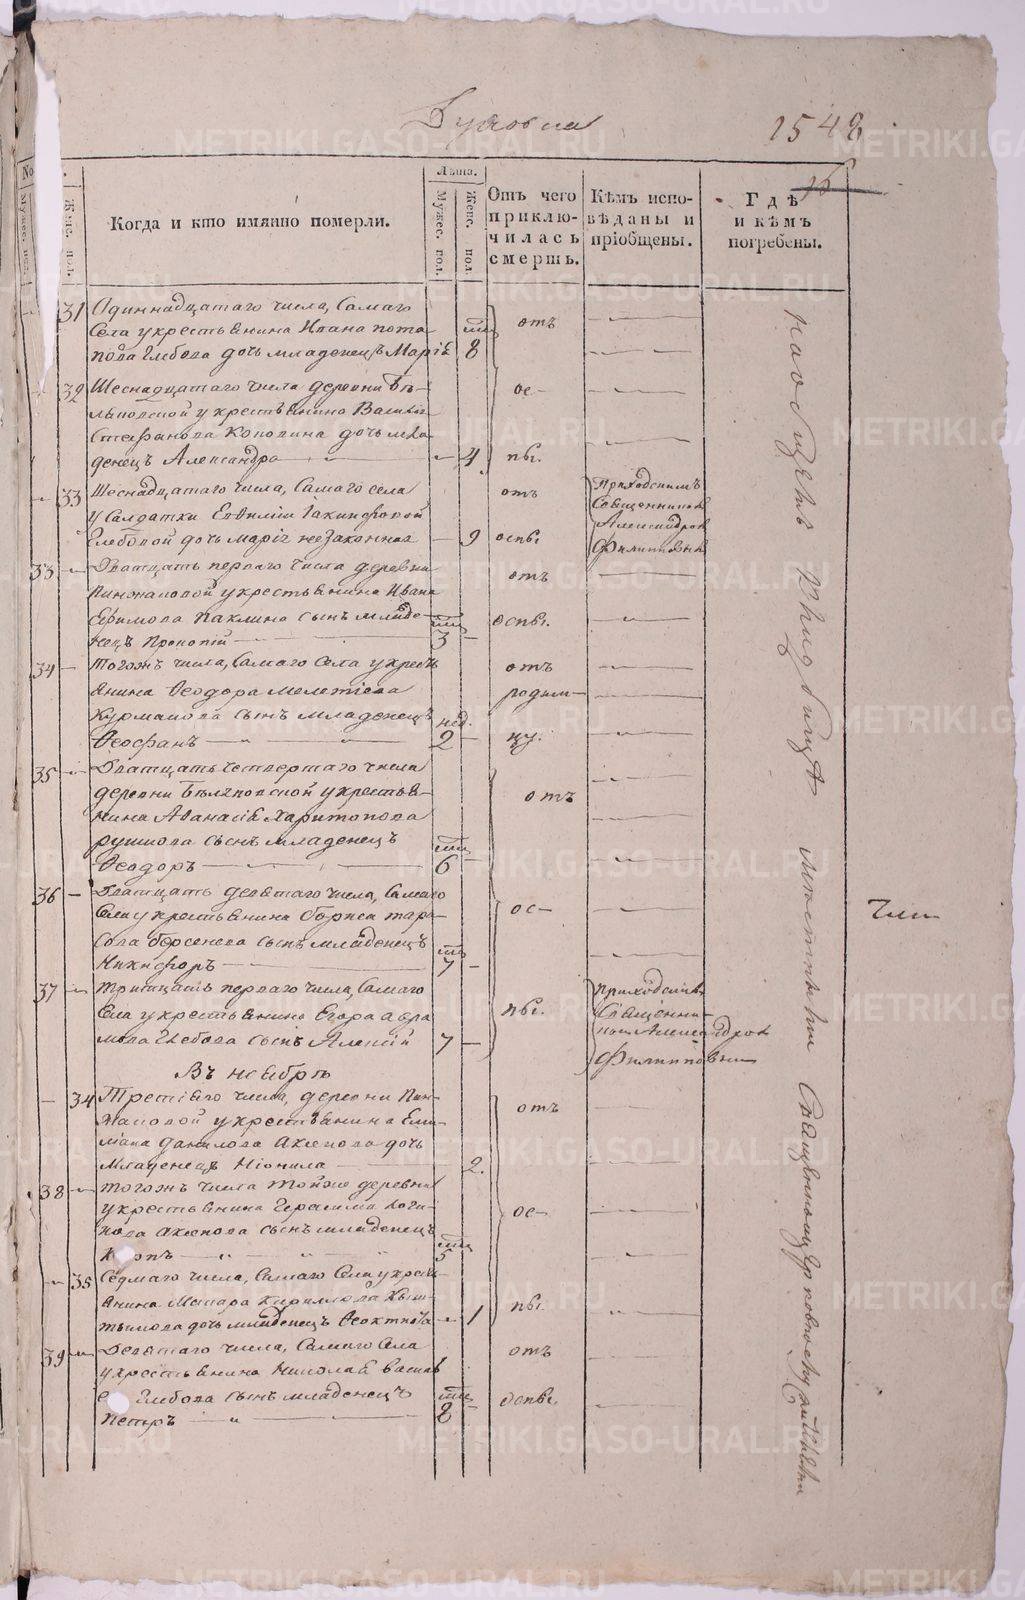 1548
№
Мужес. пол.
Женс. пол.
Когда и кто имянно померли.
Лѣта.
Мужес. пол.
Женс. пол.
Отъ чего приклю-чилась смерть.
Кѣмъ испо-вѣданы и пріобщены.
Гдѣ и кѣмъ погребены.
31 Одиннадцатаго числа, Самаго
Села у крестьянина Ивана Пота-
пова Глебова дочь младенецъ Марія 8
отъ
32 Шеснадцатаго числа деревни
у крестьянина
Стефанова Коновина дочь мла-
денецъ Александра 4
ос-
пы.
33 Шеснадцатаго числа, Самаго села
у Салдатки Іакинфовой
Глебовой дочь Марія незаконная 9
отъ
оспы
Приходскимъ
Священникомъ
Александромъ
Филипповымъ
33 Дватцать перваго числа деревни
у крестьянина Ивана
Ефимова Паклина сынъ младе-
нецъ Прокопій 3
отъ
оспы.
34 Тогожъ числа, Самаго Села у кресть
янина Ѳеодора Мелетіева
Курманова сынъ младенецъ нед.
Ѳеофанъ 2
отъ
родим-
цу.
35 Дватцать четвертаго числа
деревни у крестья-
нина Аѳанасія Харитонова
сынъ младенецъ
Ѳеодоръ 6
отъ
36 Дватцать девятаго числа, Самаго
Села у крестьянина Бориса Тара-
сова Берсенева сынъ младенецъ
Никифоръ 7
ос-
37 Тритцать перваго числа, Самаго
Села у крестьянина Егора Авра
мова Глебова сынъ Алексій 7
пы.
Приходскимъ
Священни-
комъ Александромъ
Филипповымъ
Въ ноябрѣ
34 Третіяго числа, деревни
у крестьянина
Данилова Аксенова дочь
Младенецъ Неонила 2.
отъ
38 Тогожъ числа тойже деревни
у крестьянина Герасима Логи-
нова Аксенова сынъ младенецъ
5
ос-
35 Седмаго числа, Самаго Села у кресть-
янина Макара Кириллова Кыш-
тымова дочь младенецъ Ѳеоктиста 1
пы.
39 Девятаго числа, Самаго Села
у крестьянина Николая Васильев
Глебова сынъ младенецъ
Петръ 8
отъ
оспы
На общемъ кладбищѣ мѣстнымъ Священноцерковнослужителями